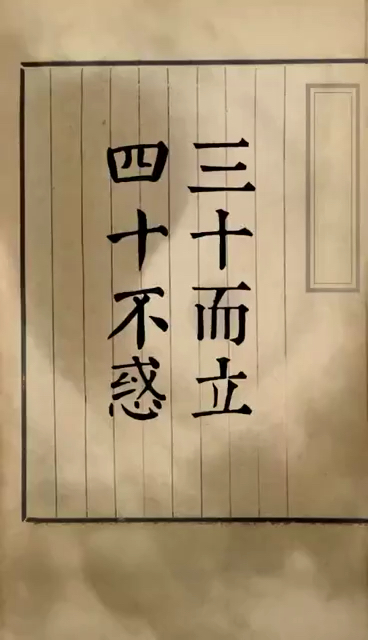 三十而立
四十不惑